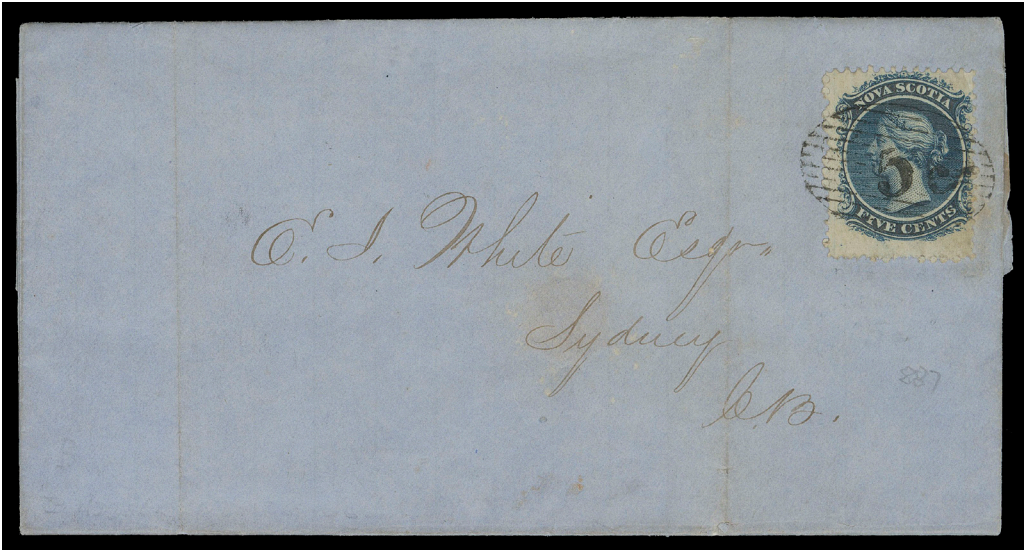 NOVA SCOTIA
5
FIVE CENTS
E. I. White Esqr
Sydney
C.B.
887